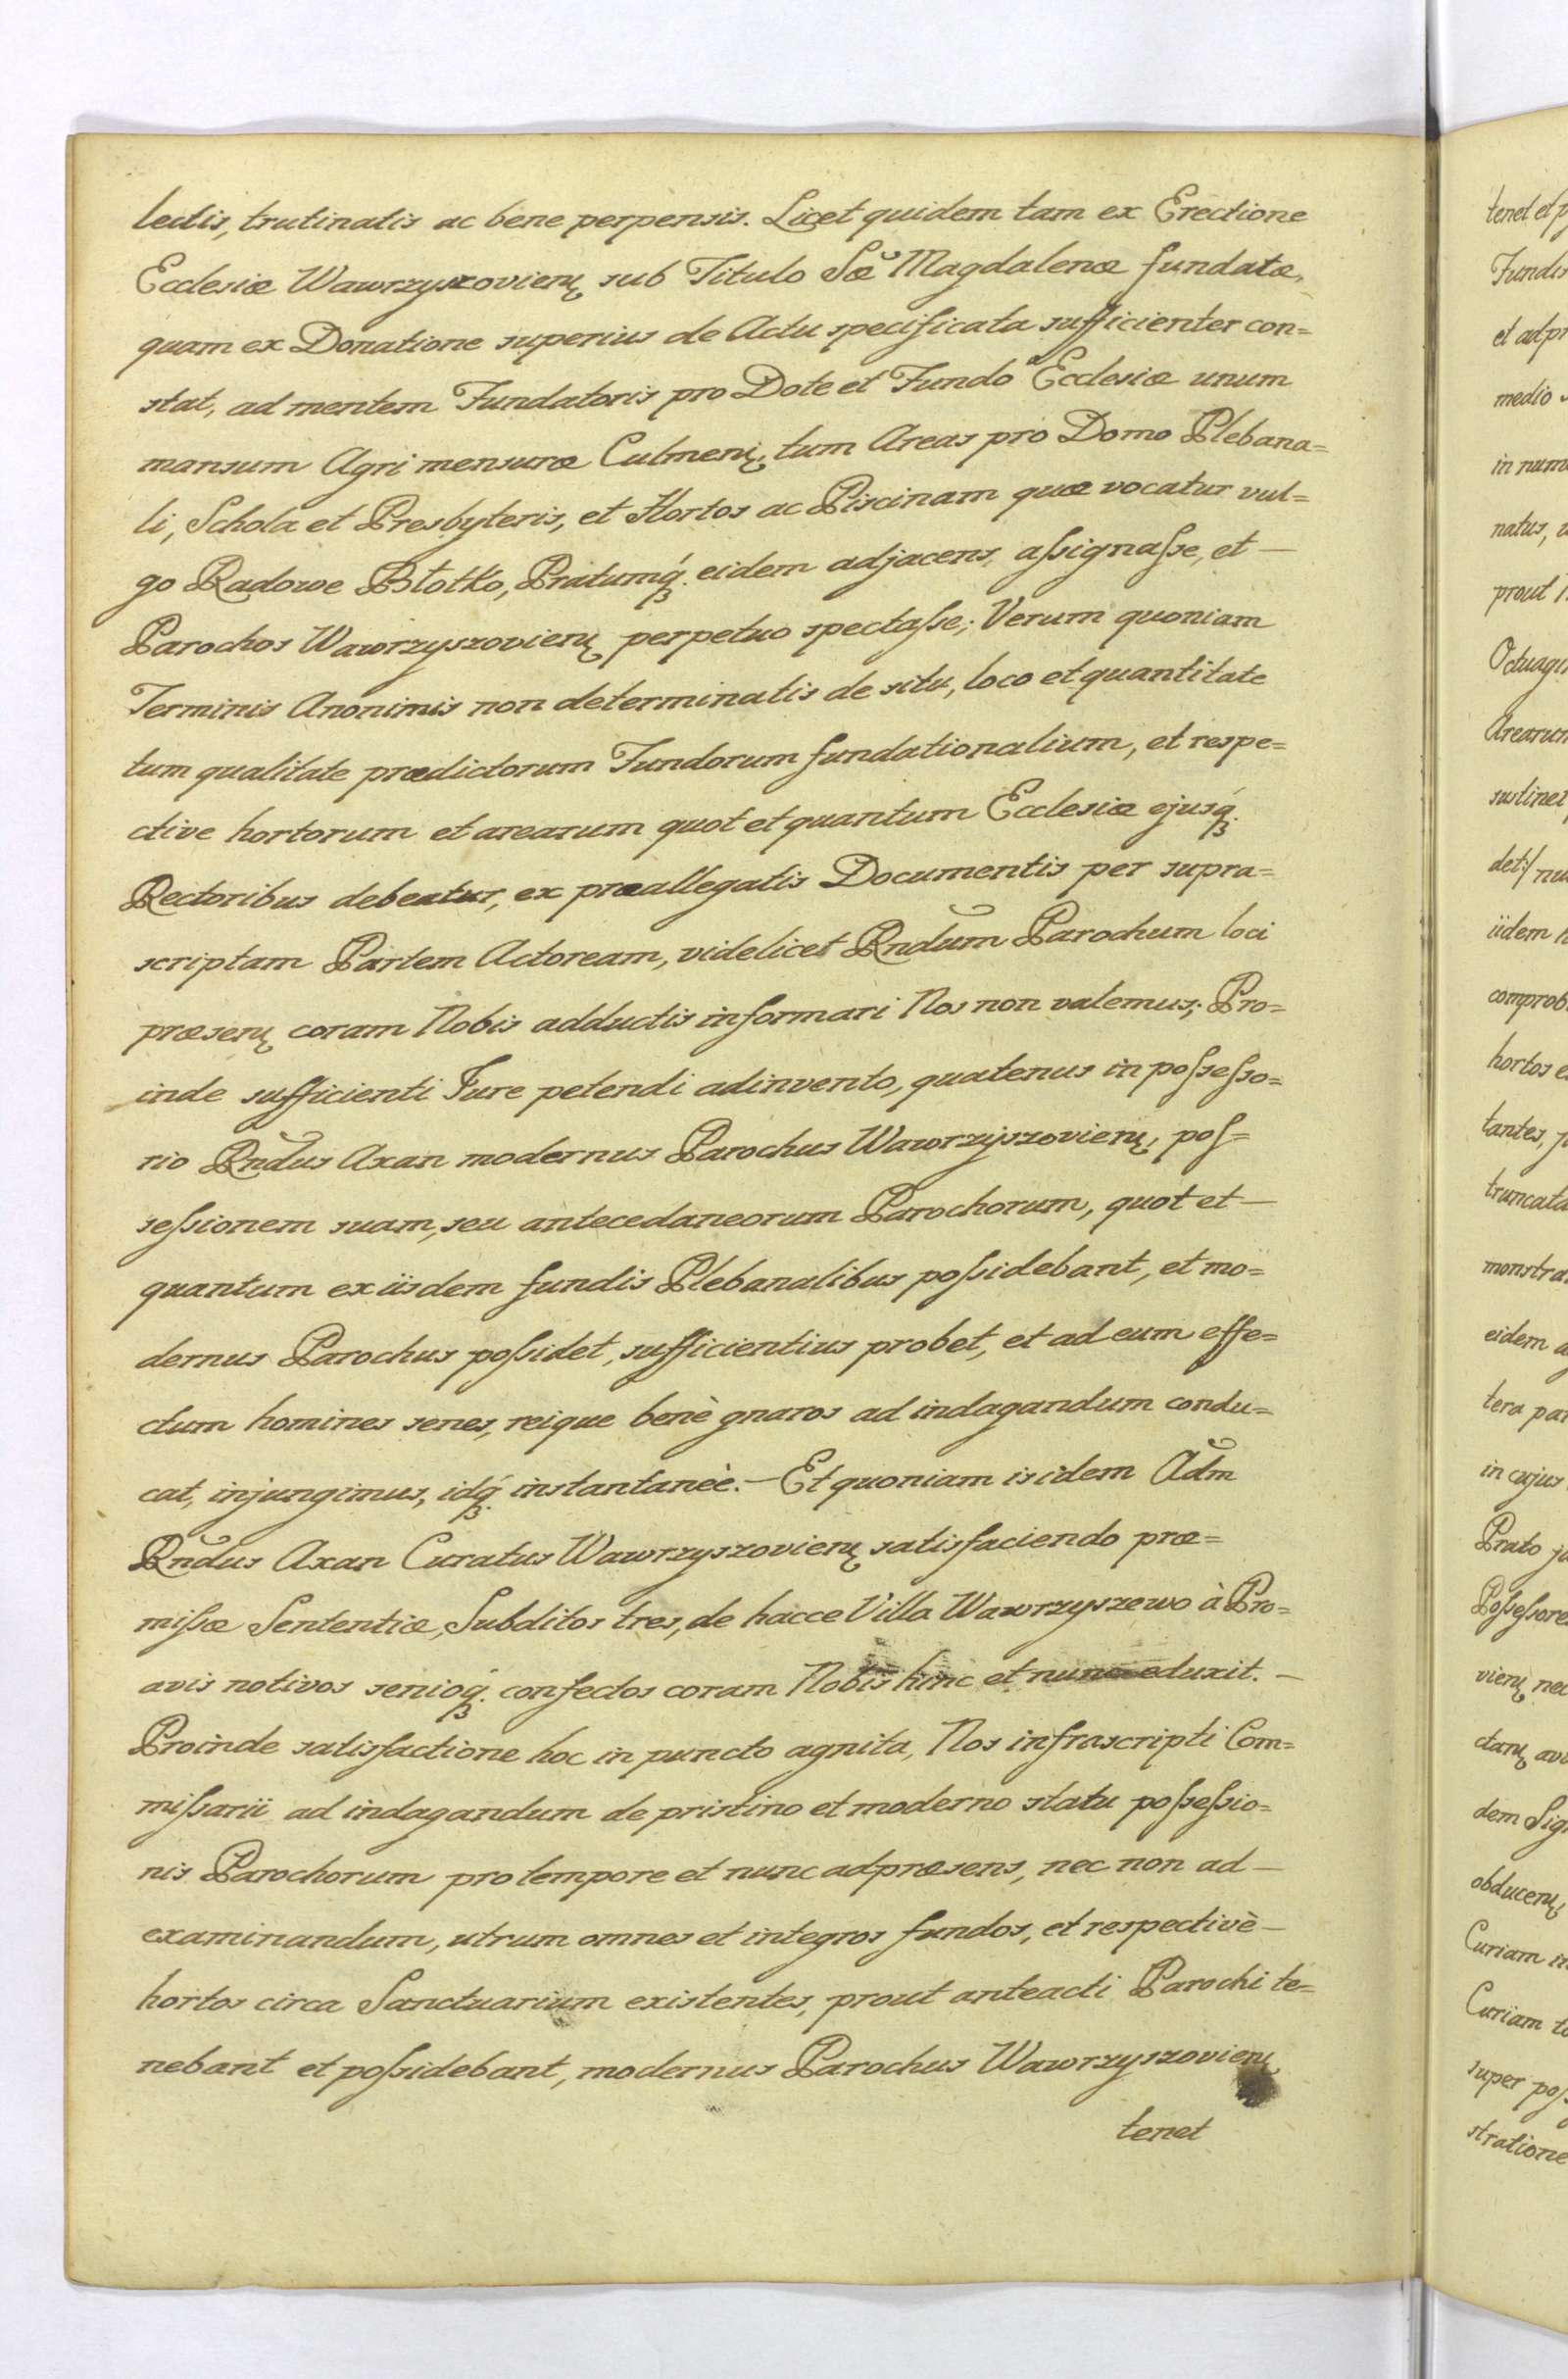 lectis, trutinatis ac bene perpensis. Licet quidem tam ex Erectione
Ecclesiæ Wawrzyszovien: sub Titulo Sæ Magdalenæ fundatæ,
quam ex Donatione superius de Actu specificata sufficienter con=
stat, ad mentem Fundatoris pro Dote et Fundo Ecclesiæ unum
mansum Agri mensuræ Culmen:, tum Areas pro Domo Plebana=
li, Schola et Presbyteris, et Hortos ac Piscinam quæ vocatur vul=
go Radowe Błotko, Pratumq́ꝫ. eidem adjacens, aſsignaſse, et —
Parochos Wawrzyszovien: perpetuo spectaſse; Verum quoniam
Terminis Anonimis non determinatis de situ, loco et quantitate
tum qualitate prædictorum Fundorum fundationalium, et respe=
ctive hortorum et arearum quot et quantum Ecclesiæ ejusq́ꝫ.
Rectoribus debeatur, ex præallegatis Documentis per supra=
scriptam Partem Actoream, videlicet Rndum Parochum loci
præsen: coram Nobis adductis informari Nos non valemus; Pro=
inde sufficienti Jure petendi adinvento, quatenus in poſseſso=
rio Rndus Axan modernus Parochus Wawrzyszovien:, poſ=
seſsionem suam, seu antecedaneorum Parochorum, quot et —
quantum ex iisdem fundis Plebanalibus poſsidebant, et mo=
dernus Parochus poſsidet, sufficientius probet, et ad eum effe=
ctum homines senes, reique benè gnaros ad indagandum condu=
cat, injungimus, idq́ꝫ. instantaneè. — Et quoniam is idem Adm
Rndus Axan Curatus Wawrzyszovien: satisfaciendo præ=
miſsæ Sententiæ, Subditos tres, de hacce Villa Wawrzyszewo à Pro=
avis notivos senioq́ꝫ. confectos coram Nobis hinc et nunc eduxit. —
Proinde satisfactione hoc in puncto agnita, Nos infrascripti Com=
miſsarii ad indagandum de pristino et moderno statu poſseſsio=
nis Parochorum pro tempore et nunc ad præsens, nec non ad —
examinandum, utrum omnes et integros fundos, et respectivè —
hortos circa Sanctuarium existentes, prout anteacti Parochi te=
nebant et poſsidebant, modernus Parochus Wawrzyszovien:
tenet
tenet et
Fundis
medio
natus,
prout
Arearum
iidem
hortos
tantes,
truncata
eidem
in cujus
Prato
vien: nec
Curiam in
Curiam
super
stratione